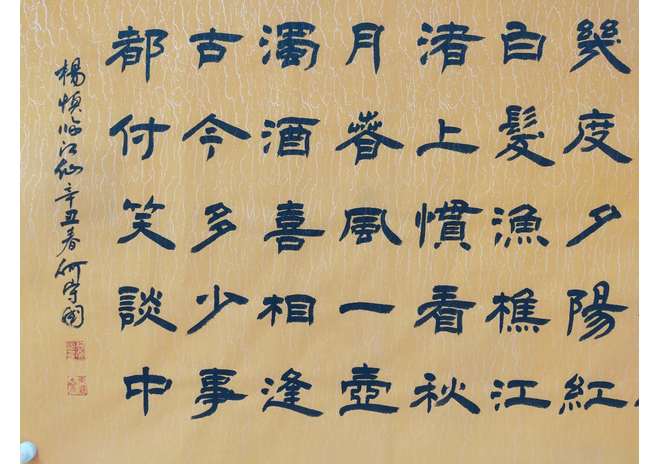 幾度夕陽紅
白髮漁樵江
渚上慣看秋
月萅風一壺
濁酒喜相逢
古今多少事
都付笑談中
楊慎临江仙辛丑春何守國